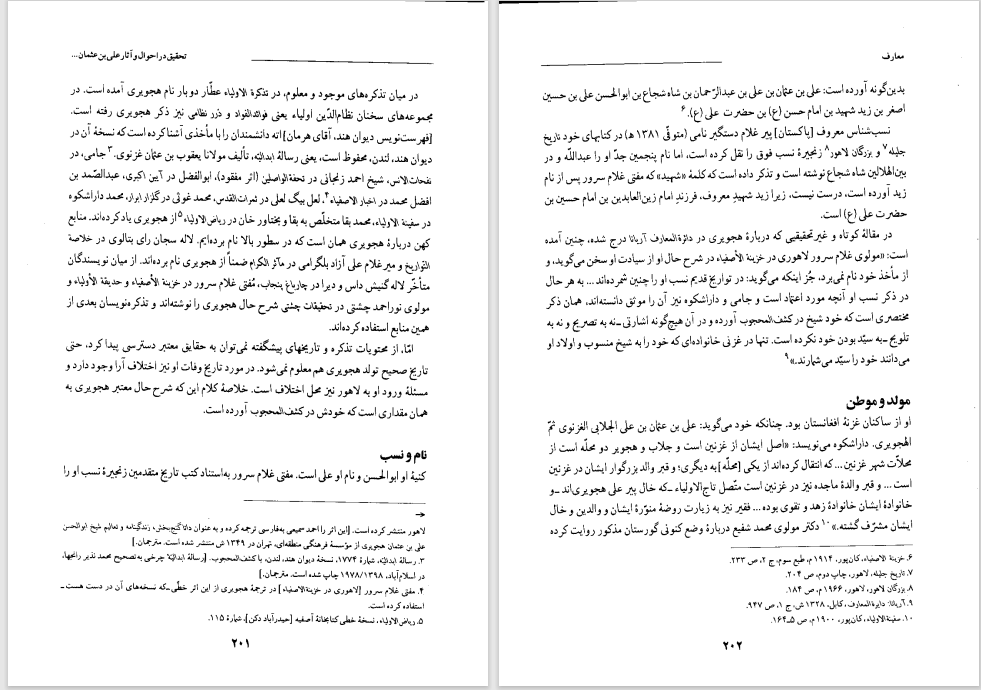 تحقیق در احوال و آثار علی بن عثمان...
در میان تذکره‌های موجود و معلوم، در تذکرة الاولیاء عطّار دو بار نام هجویری آمده است. در
مجموعه‌های سخنان نظام‌الدّین اولیاء یعنی فوائدالفواد و درر نظامی نیز ذکر هجویری رفته است.
[فهرست‌نویس دیوان هند، آقای هرمان] اته دانشمندان را با مأخذی آشنا کرده است که نسخهٔ آن در
دیوان هند، لندن، محفوظ است، یعنی رسالهٔ ابدالیّه، تألیف مولانا یعقوب بن عثمان غزنوی.۳ جامی، در
نفحات‌الانس، شیخ احمد زنجانی در تحفةالواصلین (اثر مفقود)، ابوالفضل در آیین اکبری، عبدالصّمد بن
افضل محمد در اخبار الاصفیاء،۴ لعل بیگ لعلی در ثمرات‌القدس، محمد غوثی در گلزار ابرار، محمد داراشکوه
در سفینة الاولیاء، محمد بقا متخلّص به بقا و بختاور خان در ریاض‌الاولیاء۵ از هجویری یاد کرده‌اند. منابع
کهن دربارهٔ هجویری همان است که در سطور بالا نام برده‌ایم. لاله سجان رای بتالوی در خلاصة
التواریخ و میر غلام علی آزاد بلگرامی در مآثر الکرام ضمناً از هجویری نام برده‌اند. از میان نویسندگان
متأخّر لاله گنیش داس و دیرا در چارباغ پنجاب، مُفتی غلام سرور در خزینة الأصفیاء و حدیقة الأولیاء و
مولوی نوراحمد چشتی در تحقیقات چشتی شرح حال هجویری را نوشته‌اند و تذکره‌نویسان بعدی از
همین منابع استفاده کرده‌اند.
امّا، از محتویات تذکره و تاریخهای پیشگفته نمی‌توان به حقایق معتبر دسترسی پیدا کرد، حتی
تاریخ صحیح تولد هجویری هم معلوم نمی‌شود. در مورد تاریخ وفات او نیز اختلاف آرا وجود دارد و
مسئلهٔ ورود او به لاهور نیز محل اختلاف است. خلاصهٔ کلام این که شرح حال معتبر هجویری به
همان مقداری است که خودش در کشف‌المحجوب آورده است.
نام و نسب
کنیهٔ او ابوالحسن و نام او علی است. مفتی غلام سرور به‌استناد کتب تاریخ متقدمین زنجیرهٔ نسب او را
←
لاهور منتشر کرده است. [این اثر را احمد سمیعی به‌فارسی ترجمه کرده و به عنوان داتا گنج‌بخش، زندگینامه و تعالیم شیخ ابوالحسن
علی بن عثمان هجویری از مؤسسهٔ فرهنگی منطقه‌ای، تهران در ۱۳۴۹ ش منتشر شده است. مترجمان.]
۳. رسالهٔ ابدالیّه، شمارهٔ ۱۷۷۴، نسخهٔ دیوان هند، لندن، با کشف‌المحجوب. [رسالهٔ ابدالیّهٔ چرخی به‌تصحیح محمد نذیر رانجها،
در اسلام‌آباد، ۱۹۷۸/۱۳۹۸ چاپ شده است. مترجمان.]
۴. مفتی غلام سرور [لاهوری در خزینة الاصفیاء] در ترجمهٔ هجویری از این اثر خطّی ـ که نسخه‌های آن در دست هست ـ
استفاده کرده است.
۵. ریاض‌الاولیاء، نسخهٔ خطی کتابخانهٔ آصفیه [حیدرآباد دکن]، شمارهٔ ۱۱۵.
۲۰۱
معارف
بدین‌گونه آورده است: علی بن عثمان بن علی بن عبدالرّحمان بن شاه شجاع بن ابوالحسن علی بن حسین
اصغر بن زید شهید بن امام حسن (ع) بن حضرت علی (ع).۶
نسب‌شناس معروف [پاکستان] پیر غلام دستگیر نامی (متوفّی ۱۳۸۱ ه‍) در کتابهای خود تاریخ
جلیله۷ و بزرگان لاهور۸ زنجیرهٔ نسب فوق را نقل کرده است، اما نام پنجمین جدّ او را عبداللّه و در
بین‌الهلالین شاه شجاع نوشته است و تذکر داده است که کلمهٔ «شهید» که مفتی غلام سرور پس از نام
زید آورده است، درست نیست، زیرا زید شهیدِ معروف، فرزندِ امام زین‌العابدین بن امام حسین بن
حضرت علی (ع) است.
در مقالهٔ کوتاه و غیرتحقیقیی که دربارهٔ هجویری در دائرةالمعارف آریانا درج شده، چنین آمده
است: «مولوی غلام سرور لاهوری در خزینة الأصفیاء در شرح حال او از سیادت او سخن می‌گوید، و
از مأخذ خود نام نمی‌برد، جُز اینکه می‌گوید: در تواریخ قدیم نسب او را چنین شمرده‌اند... به هر حال
در ذکر نسب او آنچه مورد اعتماد است و جامی و داراشکوه نیز آن را موثق دانسته‌اند، همان ذکر
مختصری است که خود شیخ در کشف‌المحجوب آورده و در آن هیچ‌گونه اشارتی ـ نه به تصریح و نه به
تلویح ـ به سیّد بودن خود نکرده است. تنها در غزنی خانواده‌ای که خود را به شیخ منسوب و اولاد او
می‌دانند خود را سیّد می‌شمارند.»۹
مولد و موطن
او از ساکنان غزنهٔ افغانستان بود. چنانکه خود می‌گوید: علی بن عثمان بن علی الجلابی الغزنوی ثمّ
الهجویری. داراشکوه می‌نویسد: «اصل ایشان از غزنین است و جلاب و هجویر دو محلّه است از
محلاّت شهر غزنین... که انتقال کرده‌اند از یکی [محلّه] به دیگری؛ و قبر والد بزرگوار ایشان در غزنین
است... و قبر والدهٔ ماجده نیز در غزنین است متّصل تاج‌الاولیاء ـ که خال پیر علی هجویری‌اند ـ و
خانوادهٔ ایشان خانوادهٔ زهد و تقوی بوده... فقیر نیز به زیارت روضهٔ منوّرهٔ ایشان و والدین و خال
ایشان مشرّف گشته.»۱۰ دکتر مولوی محمد شفیع دربارهٔ وضع کنونی گورستان مذکور روایت کرده
۶. خزینة الاصفیاء، کان‌پور، ۱۹۱۴ م، طبع سوم، ج ۲، ص ۲۳۳.
۷. تاریخ جلیله، لاهور، چاپ دوم، ص ۲۰۴.
۸. بزرگان لاهور، لاهور، ۱۹۶۶ م، ص ۱۸۴.
۹. آریانا: دایرةالمعارف، کابل، ۱۳۲۸ ش، ج ۱، ص ۹۴۷.
۱۰. سفینةالاولیاء، کان‌پور، ۱۹۰۰ م، ص ۵ـ۱۶۴.
۲۰۲